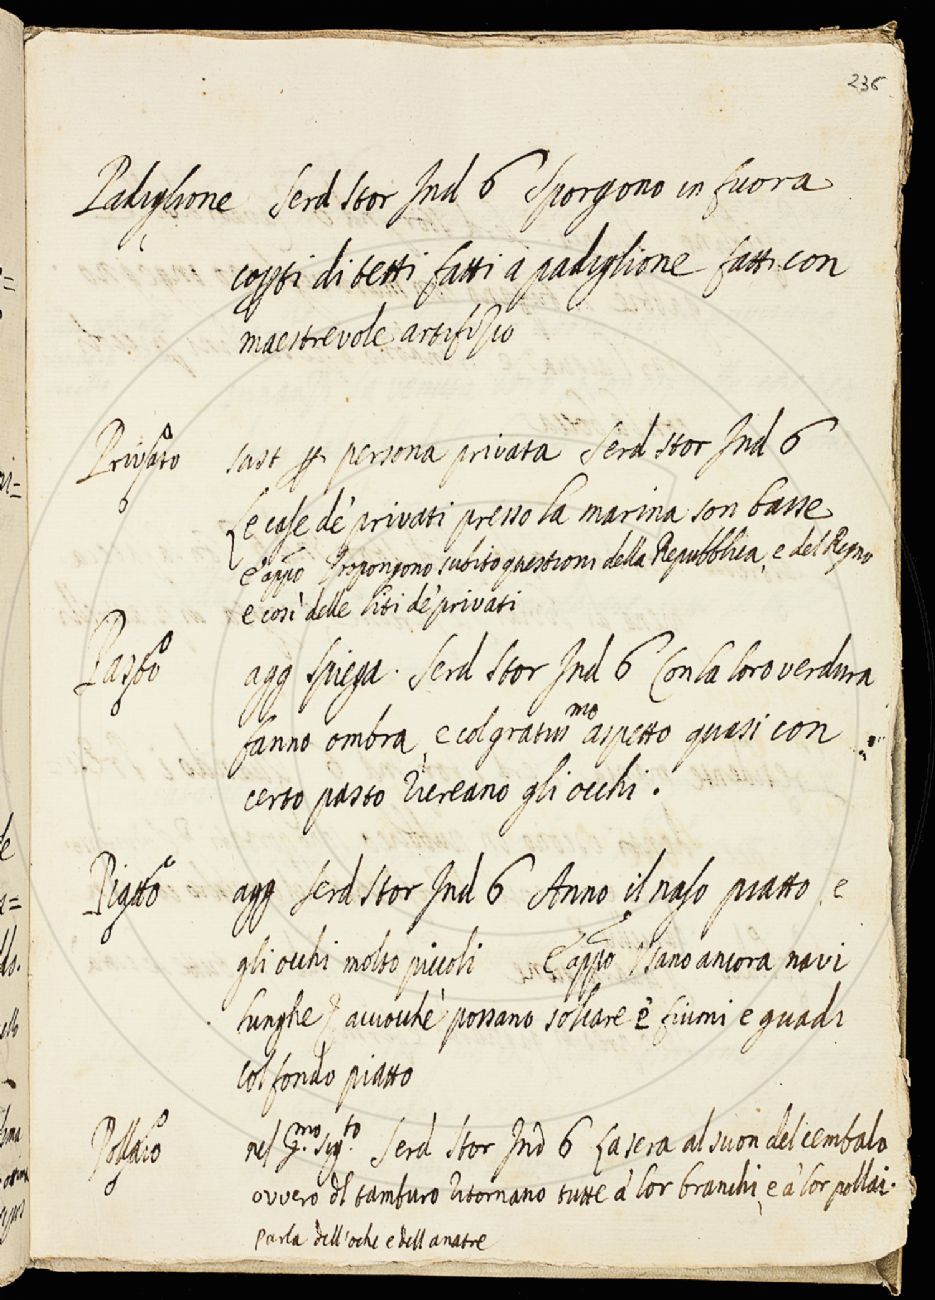 236
Padiglione Serd Stor Ind 6 Sporgono in fuora
coppi di tetti fatti a padiglione fatti con
maestrevole artifizio
Privato sust p persona privata Serd Stor Ind 6
Le case de' privati presso la marina son basse
e appo Propongono subito questioni della Repubblica, e del Regno
e così delle liti de' privati
Pasto agg spiega. Serd Stor Ind 6 Con la loro verdura
fanno ombra, e col gratiss.mo aspetto quasi con
certo pasto ricreano gli occhi.
Piatto agg Serd Stor Ind 6 Anno il naso piatto, e
gli occhi molto piccoli E appo Usano ancora navi
lunghe acciocchè possano solcare e fiumi e guadi
col fondo piatto
Pollaio nel p.mo sig.to Serd Stor Ind 6 La sera al suon del cembalo
ovvero del tamburo ritornano tutte a' lor branchi, e a' lor pollai.
Parla dell'oche e dell anatre